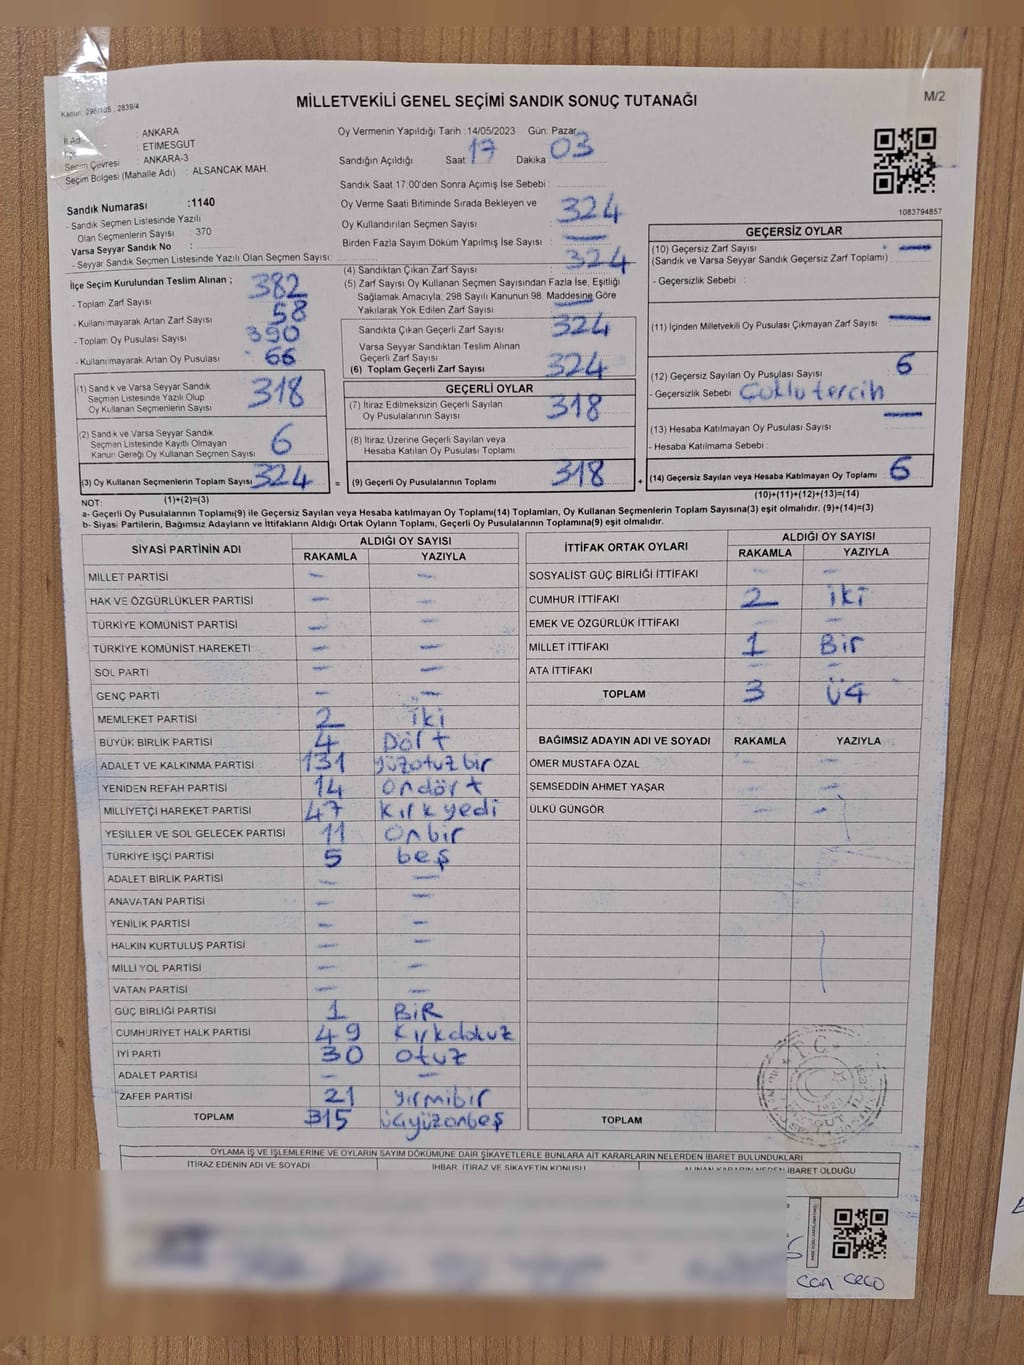 Kanun: 298/105 , 2839/4
MİLLETVEKİLİ GENEL SEÇİMİ SANDIK SONUÇ TUTANAĞI
M/2
İl Adı : ANKARA
: ETİMESGUT
Seçim Çevresi : ANKARA-3
Seçim Bölgesi (Mahalle Adı) : ALSANCAK MAH.
Oy Vermenin Yapıldığı Tarih :14/05/2023 Gün: Pazar
Sandığın Açıldığı Saat 17 Dakika 03
Sandık Saat 17:00'den Sonra Açımış İse Sebebi :
1083794857
Sandık Numarası :1140
- Sandık Seçmen Listesinde Yazılı
Olan Seçmenlerin Sayısı : 370
Varsa Seyyar Sandık No :
- Seyyar Sandık Seçmen Listesinde Yazılı Olan Seçmen Sayısı:
Oy Verme Saati Bitiminde Sırada Bekleyen ve
Oy Kullandırılan Seçmen Sayısı 324
Birden Fazla Sayım Döküm Yapılmış İse Sayısı : —
İlçe Seçim Kurulundan Teslim Alınan ;
- Toplam Zarf Sayısı 382
- Kullanılmayarak Artan Zarf Sayısı 58
- Toplam Oy Pusulası Sayısı 390
- Kullanılmayarak Artan Oy Pusulası 66
(1) Sandık ve Varsa Seyyar Sandık
Seçmen Listesinde Yazılı Olup
Oy Kullanan Seçmenlerin Sayısı 318
(2) Sandık ve Varsa Seyyar Sandık
Seçmen Listesinde Kayıtlı Olmayan
Kanun Gereği Oy Kullanan Seçmen Sayısı 6
(3) Oy Kullanan Seçmenlerin Toplam Sayısı 324 =
(4) Sandıktan Çıkan Zarf Sayısı 324
(5) Zarf Sayısı Oy Kullanan Seçmen Sayısından Fazla İse, Eşitliği
Sağlamak Amacıyla; 298 Sayılı Kanunun 98. Maddesine Göre
Yakılarak Yok Edilen Zarf Sayısı —
Sandıkta Çıkan Geçerli Zarf Sayısı 324
Varsa Seyyar Sandıktan Teslim Alınan
Geçerli Zarf Sayısı
(6) Toplam Geçerli Zarf Sayısı 324
GEÇERLİ OYLAR
(7) İtiraz Edilmeksizin Geçerli Sayılan
Oy Pusulalarının Sayısı 318
(8) İtiraz Üzerine Geçerli Sayılan veya
Hesaba Katılan Oy Pusulası Toplamı
(9) Geçerli Oy Pusulalarının Toplamı 318 +
GEÇERSİZ OYLAR
(10) Geçersiz Zarf Sayısı : —
(Sandık ve Varsa Seyyar Sandık Geçersiz Zarf Toplamı)
- Geçersizlik Sebebi :
(11) İçinden Milletvekili Oy Pusulası Çıkmayan Zarf Sayısı —
(12) Geçersiz Sayılan Oy Pusulası Sayısı 6
- Geçersizlik Sebebi Çoklu tercih
(13) Hesaba Katılmayan Oy Pusulası Sayısı —
- Hesaba Katılmama Sebebi :
(14) Geçersiz Sayılan veya Hesaba Katılmayan Oy Toplamı 6
NOT: (1)+(2)=(3)
(10)+(11)+(12)+(13)=(14)
a- Geçerli Oy Pusulalarının Toplamı(9) ile Geçersiz Sayılan veya Hesaba katılmayan Oy Toplamı(14) Toplamları, Oy Kullanan Seçmenlerin Toplam Sayısına(3) eşit olmalıdır. (9)+(14)=(3)
b- Siyasi Partilerin, Bağımsız Adayların ve İttifakların Aldığı Ortak Oyların Toplamı, Geçerli Oy Pusulalarının Toplamına(9) eşit olmalıdır.
SİYASİ PARTİNİN ADI ALDIĞI OY SAYISI
RAKAMLA YAZIYLA
MİLLET PARTİSİ — —
HAK VE ÖZGÜRLÜKLER PARTİSİ — —
TÜRKİYE KOMÜNİST PARTİSİ — —
TÜRKİYE KOMÜNİST HAREKETİ — —
SOL PARTİ — —
GENÇ PARTİ — —
MEMLEKET PARTİSİ 2 iki
BÜYÜK BİRLİK PARTİSİ 4 Dört
ADALET VE KALKINMA PARTİSİ 131 yüzotuzbir
YENİDEN REFAH PARTİSİ 14 Ondört
MİLLİYETÇİ HAREKET PARTİSİ 47 Kırkyedi
YEŞİLLER VE SOL GELECEK PARTİSİ 11 Onbir
TÜRKİYE İŞÇİ PARTİSİ 5 beş
ADALET BİRLİK PARTİSİ — —
ANAVATAN PARTİSİ — —
YENİLİK PARTİSİ — —
HALKIN KURTULUŞ PARTİSİ — —
MİLLİ YOL PARTİSİ — —
VATAN PARTİSİ — —
GÜÇ BİRLİĞİ PARTİSİ 1 BİR
CUMHURİYET HALK PARTİSİ 49 Kırkdokuz
İYİ PARTİ 30 otuz
ADALET PARTİSİ — —
ZAFER PARTİSİ 21 yirmibir
TOPLAM 315 üçyüzonbeş
İTTİFAK ORTAK OYLARI ALDIĞI OY SAYISI
RAKAMLA YAZIYLA
SOSYALİST GÜÇ BİRLİĞİ İTTİFAKI — —
CUMHUR İTTİFAKI 2 iki
EMEK VE ÖZGÜRLÜK İTTİFAKI — —
MİLLET İTTİFAKI 1 Bir
ATA İTTİFAKI — —
TOPLAM 3 üç
BAĞIMSIZ ADAYIN ADI VE SOYADI RAKAMLA YAZIYLA
ÖMER MUSTAFA ÖZAL — —
ŞEMSEDDİN AHMET YAŞAR — —
ÜLKÜ GÜNGÖR — —
TOPLAM
T.C.
OYLAMA İŞ VE İŞLEMLERİNE VE OYLARIN SAYIM DÖKÜMÜNE DAİR ŞİKAYETLERLE BUNLARA AİT KARARLARIN NELERDEN İBARET BULUNDUKLARI
İTİRAZ EDENİN ADI VE SOYADI İHBAR, İTİRAZ VE ŞİKAYETİN KONUSU ALINAN KARARIN NEDEN İBARET OLDUĞU